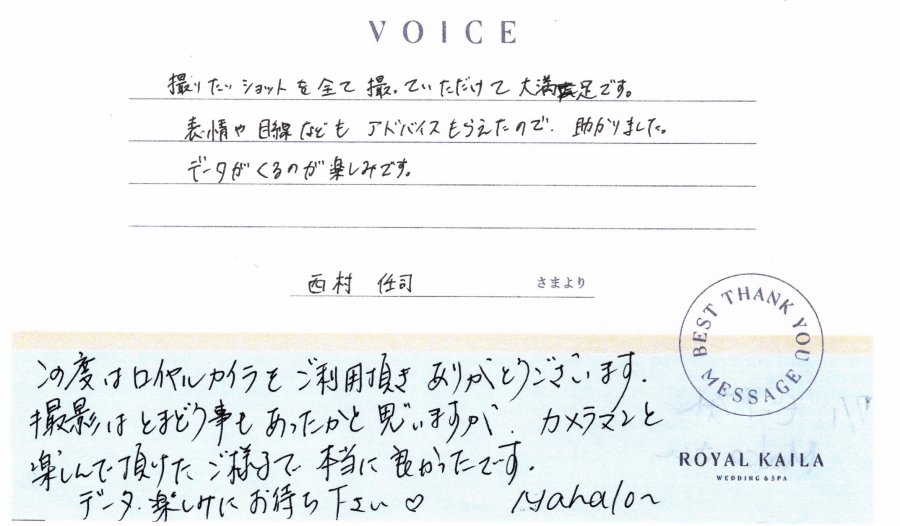 VOICE
撮りたいショットを全て撮っていただけて大満足です。
表情や目線などもアドバイスもらえたので、助かりました。
データがくるのが楽しみです。
西村 任司 さまより
BEST THANK YOU MESSAGE
この度はロイヤルカイラをご利用頂きありがとうございます。
撮影はとまどう事もあったかと思いますが、カメラマンと
楽しんで頂けたご様子で本当に良かったです。
データ、楽しみにお待ち下さい♡ Mahalo~
ROYAL KAILA
WEDDING & SPA